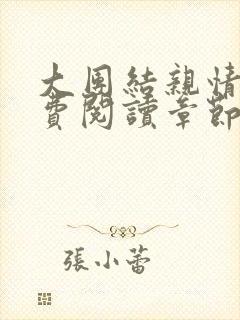 大團結親情
費閱讀章節
張小蕾